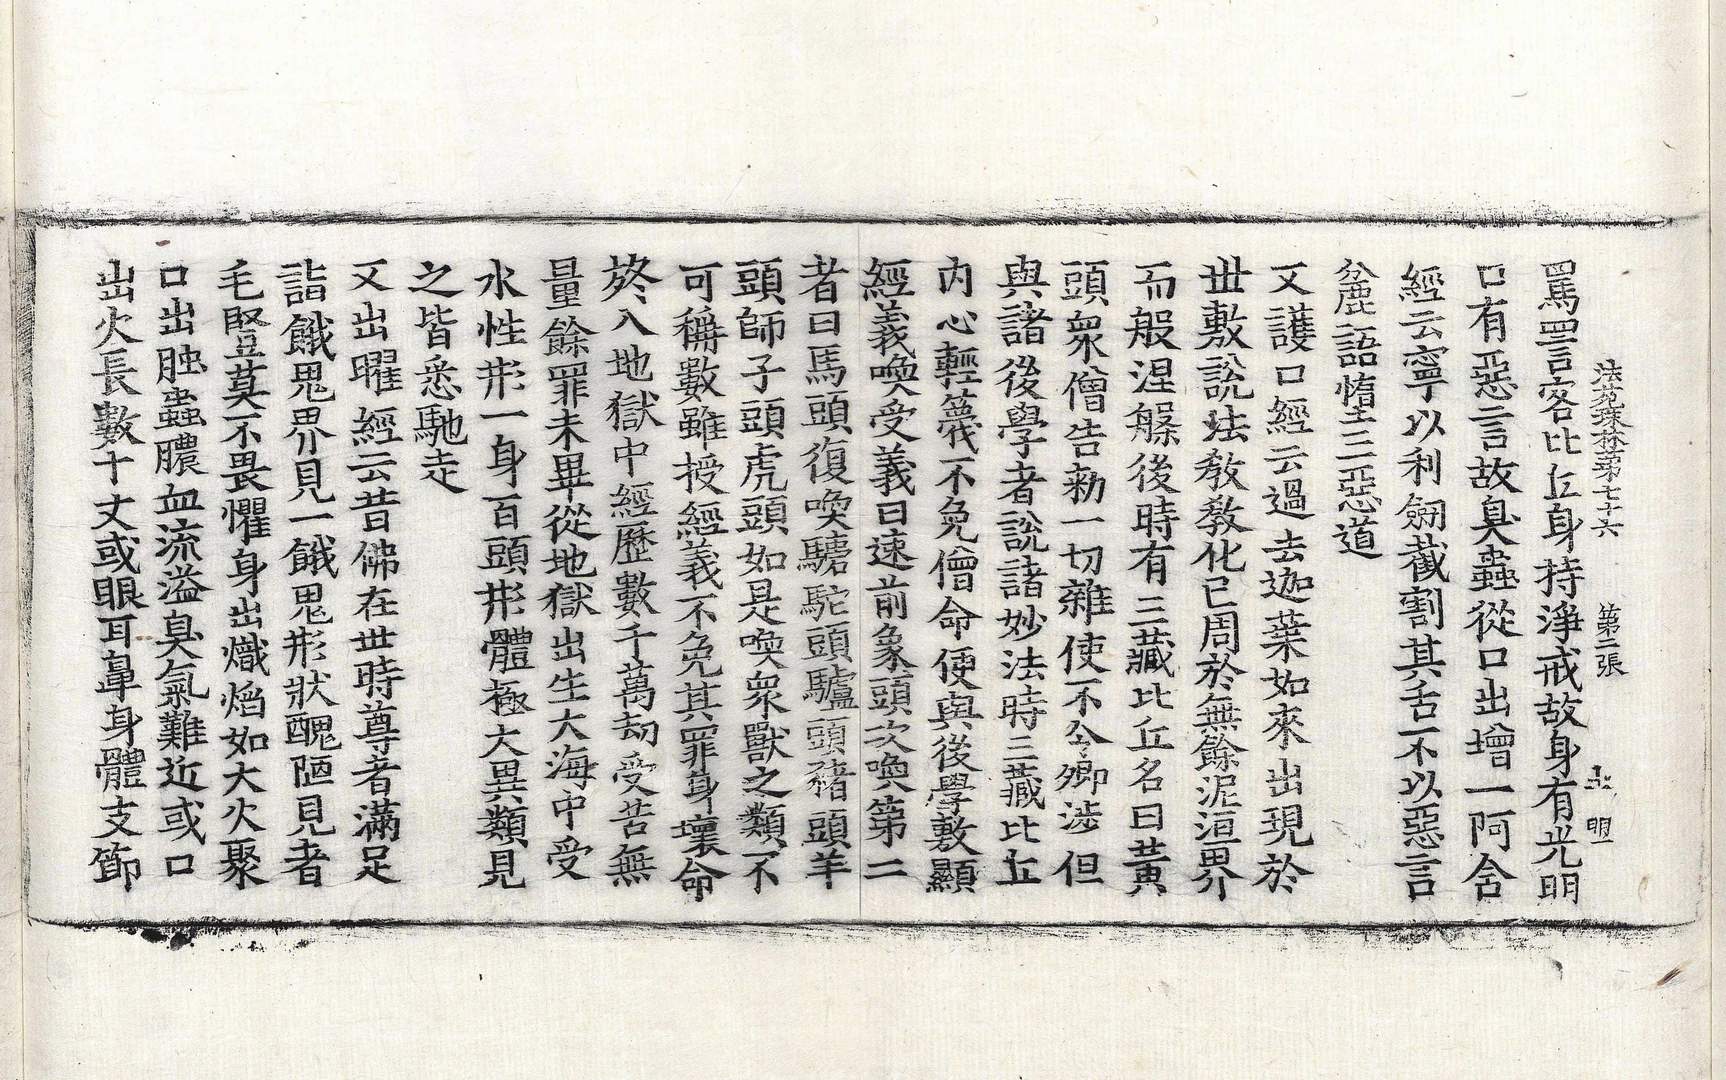 法苑珠林第七十六　第二張　亚　明
罵詈言客比丘身持淨戒故身有光明
口有惡言故臭蟲從口出增一阿含
經云寧以利劒截割其舌不以惡言
麁語墮三惡道
又護口經云過去迦葉如來出現於
世敷說法教教化已周於無餘泥洹界
而般涅槃後時有三藏比丘名曰黃
頭衆僧告勑一切雜使不令卿涉但
與諸後學者說諸妙法時三藏比丘
內心輕蔑不免僧命便與後學敷顯
經義喚受義曰速前象頭次喚第二
者曰馬頭復喚駱駝頭驢頭豬頭羊
頭師子頭虎頭如是喚衆獸之類不
可稱數雖授經義不免其罪身壞命
終入地獄中經歷數千萬劫受苦無
量餘罪未畢從地獄出生大海中受
水性形一身百頭形體極大異類見
之皆悉馳走
又出曜經云昔佛在世時尊者滿足
詣餓鬼界見一餓鬼形狀醜陋見者
毛竪莫不畏懼身出熾焰如大火聚
口出胆蟲膿血流溢臭氣難近或口
出火長數十丈或眼耳鼻身體支節